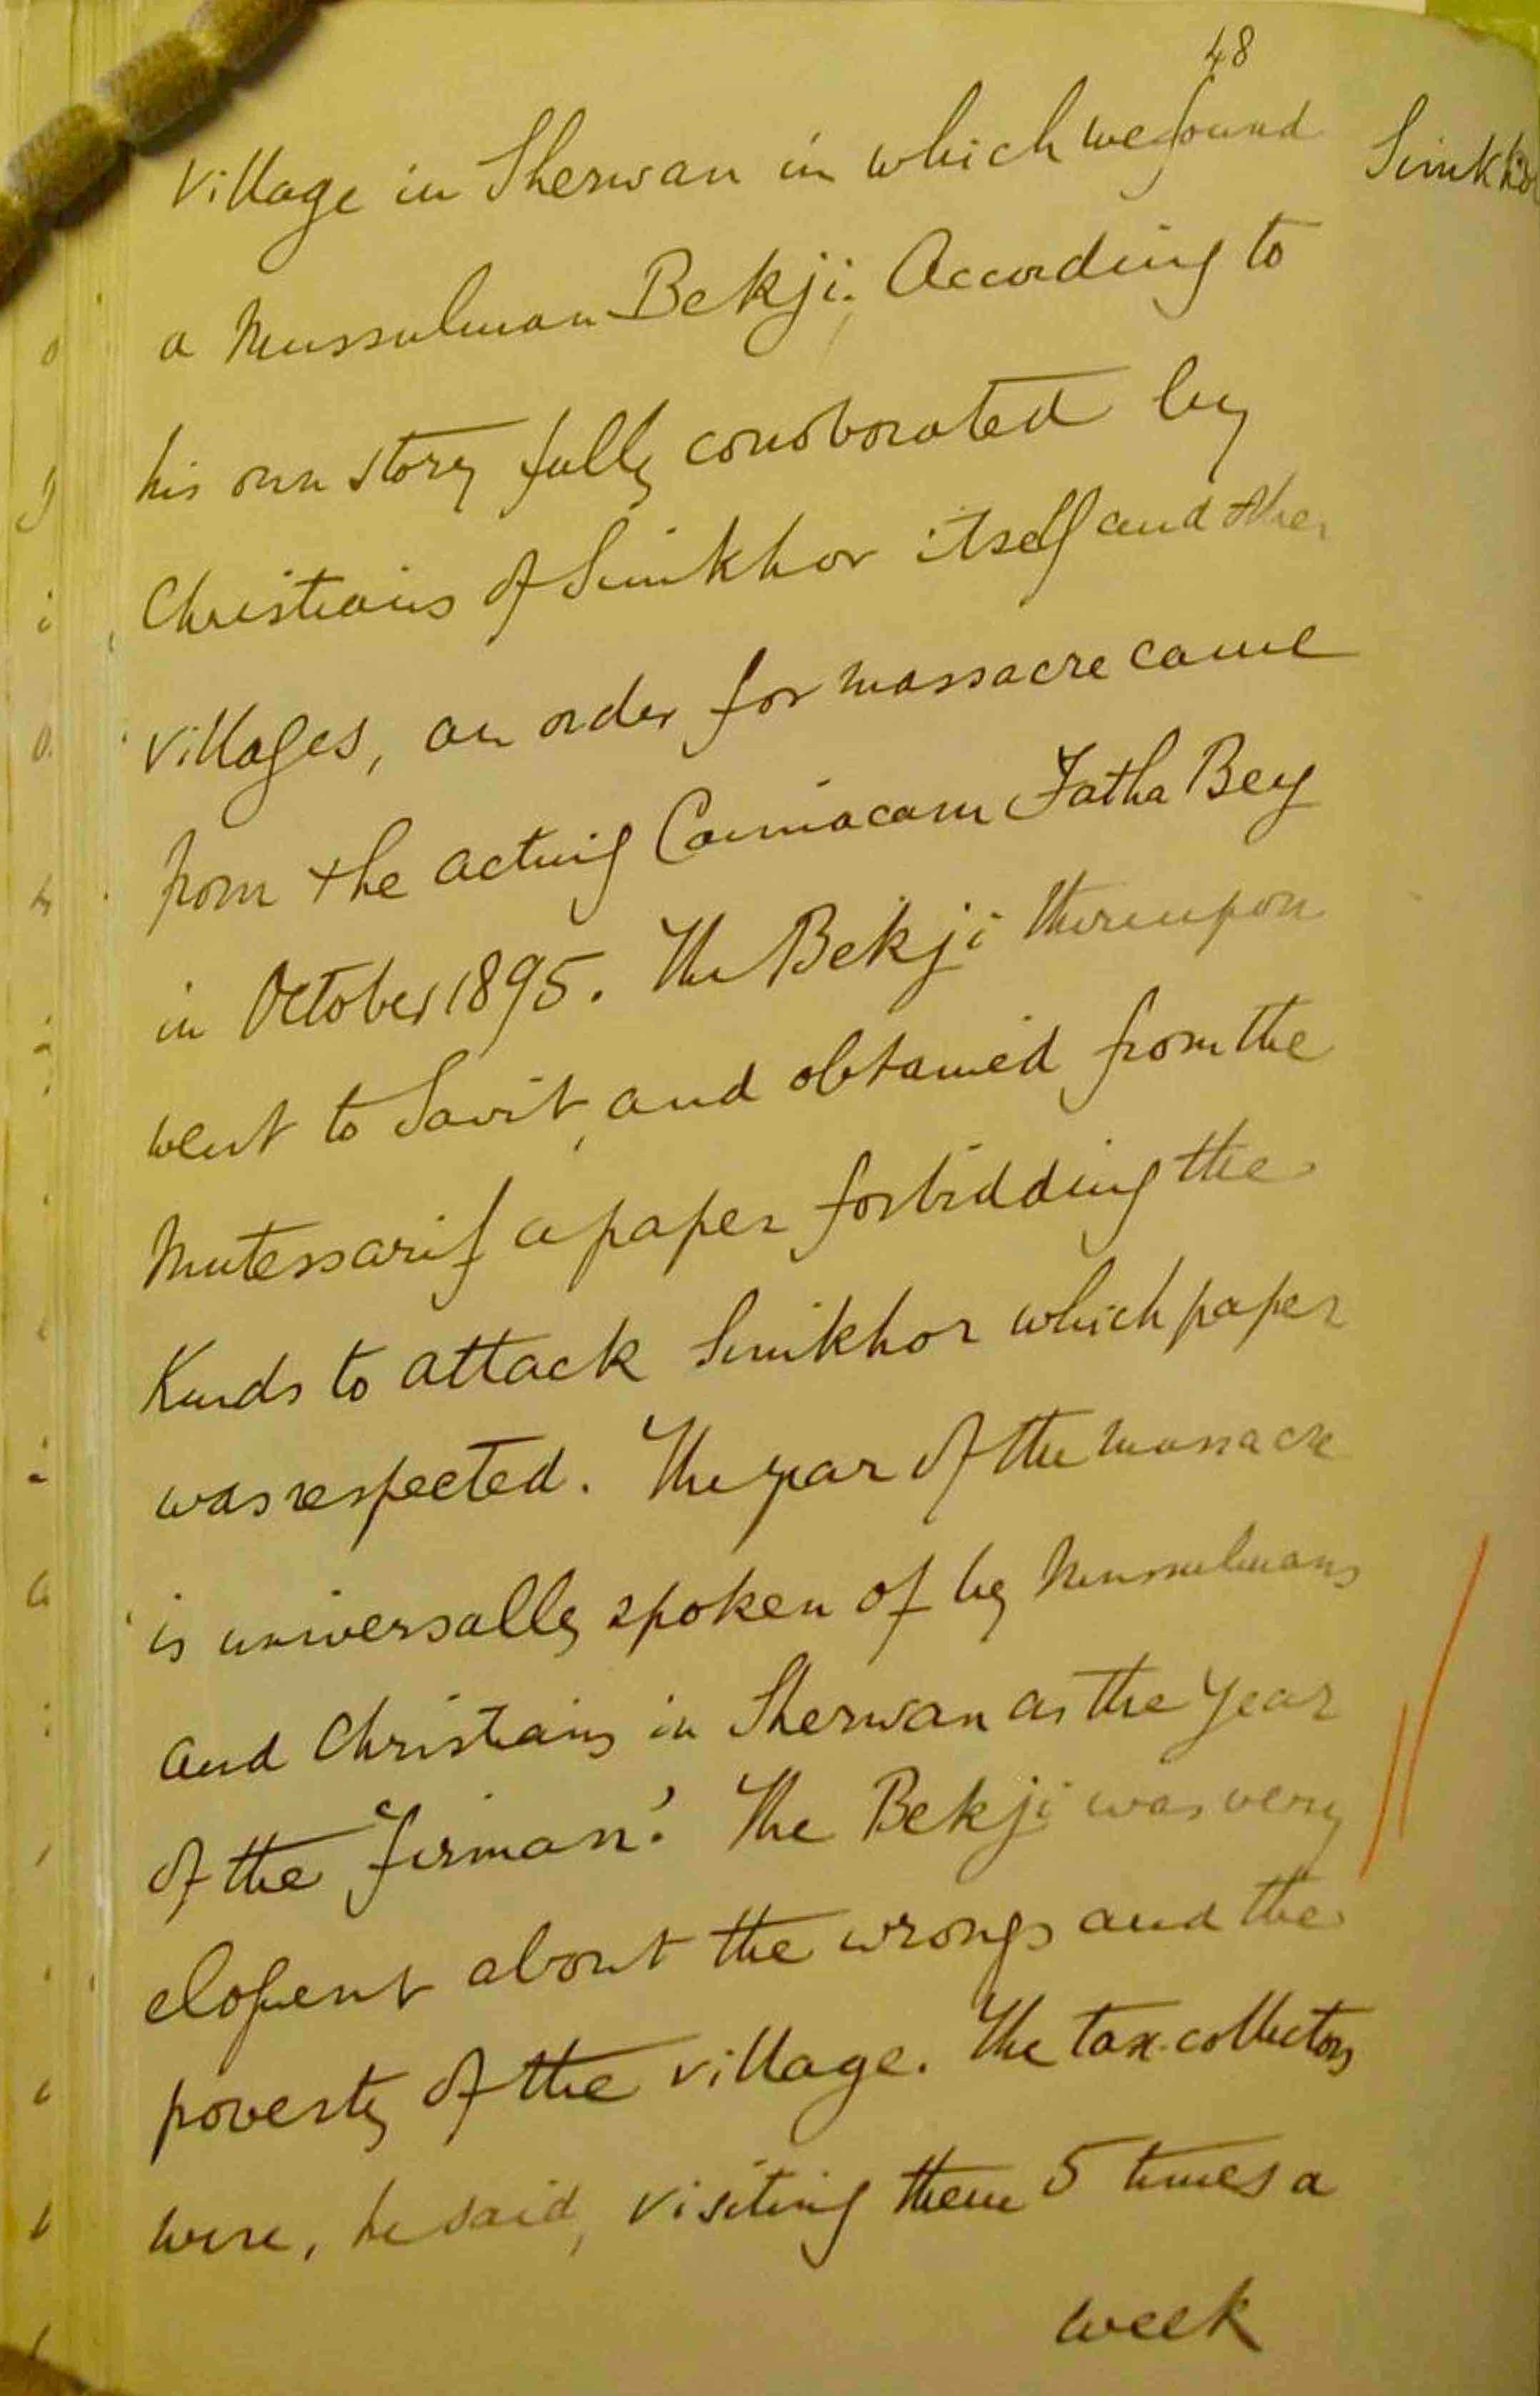 48
village in Sherwan in which we found
a Mussulman Bekji. According to
his own story fully corroborated by
Christians of Sinikhor itself and other
villages, an order for massacre came
from the acting Caimacam Fatha Bey
in October 1895. The Bekji thereupon
went to Sairt, and obtained from the
Mutessarif a paper forbidding the
Kurds to attack Sinikhor which paper
was respected. The year of the massacre
is universally spoken of by Mussulmans
and Christians in Sherwan as the year
of the "firman". The Bekji was very
eloquent about the wrongs and the
poverty of the village. The tax-collectors
were, he said, visiting them 5 times a
week